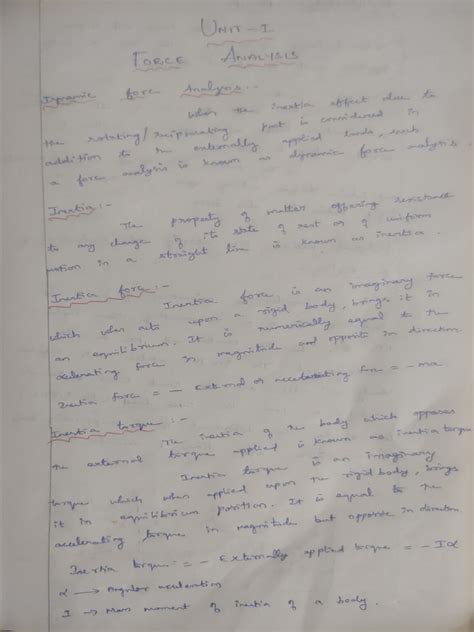 UNIT-I
FORCE ANALYSIS
Dynamic force Analysis:-
When the inertia effect due to
the rotating/reciprocating part is considered in
addition to the externally applied loads, such
a force analysis is known as dynamic force analysis.
Inertia:-
The property of matter offering resistance
to any change of its state of rest or of uniform
motion in a straight line is known as inertia.
Inertia force:-
Inertia force is an imaginary force
which when acts upon a rigid body, brings it in
an equilibrium. It is numerically equal to the
accelerating force in magnitude and opposite in direction
Inertia force = - External or accelerating force = -ma
Inertia torque:-
The inertia of the body which opposes
the external torque applied is known as inertia torque
Inertia torque is an imaginary
torque which when applied upon the rigid body, brings
it in equilibrium position. It is equal to the
accelerating torque in magnitude but opposite in direction
Inertia torque = - Externally applied torque = -Iα
α → Angular acceleration
I → Mass moment of inertia of a body.